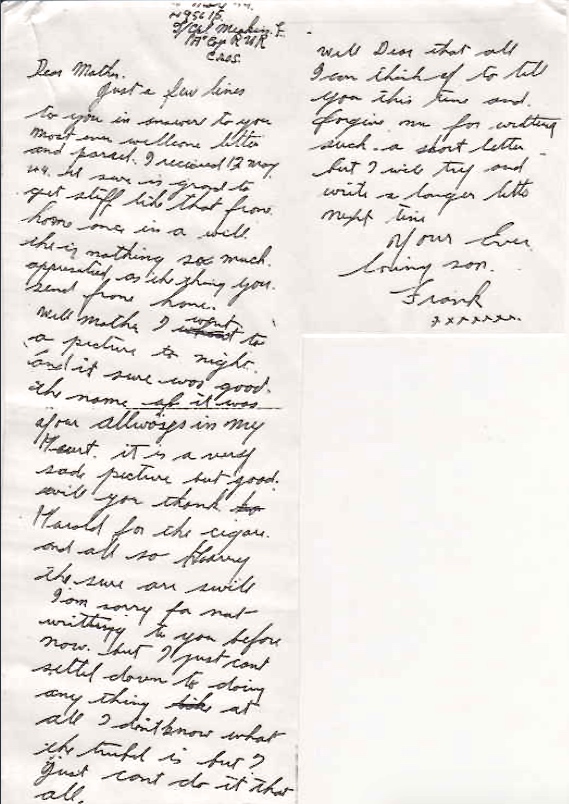 H95615
L/Cpl Meakin. F.
"A" Coy R.U.R
C.A.O.S.
Dear Mother.
Just a few lines
to you in answere to you
most ever wellcome letter
and parcel. I recieved 12 may
44. ht sure is grad to
get stuff like that from
home once in a will.
the is nothing so much.
appresated as the thing you
send frome home.
Well Mother I went to
a picture to night.
and it sure was good.
the name of it was
your allways in my
Heart. it is a very
sade picture but good.
will you thank
Harold for the cigare.
and all so Harry
the sure are swill
I'om sorry for not
writting to you before
now. but I just cant
settel down to doing
any thing at
all I don't know what
the trubel is but I
just cant do it that
all.
Well Dear that all
I can think of to tell
you this time and.
forgive me for writting
such a short letter.
but I will try and
write a larger lette
next time
Your Ever.
loving son.
Frank
xxxxxxx.